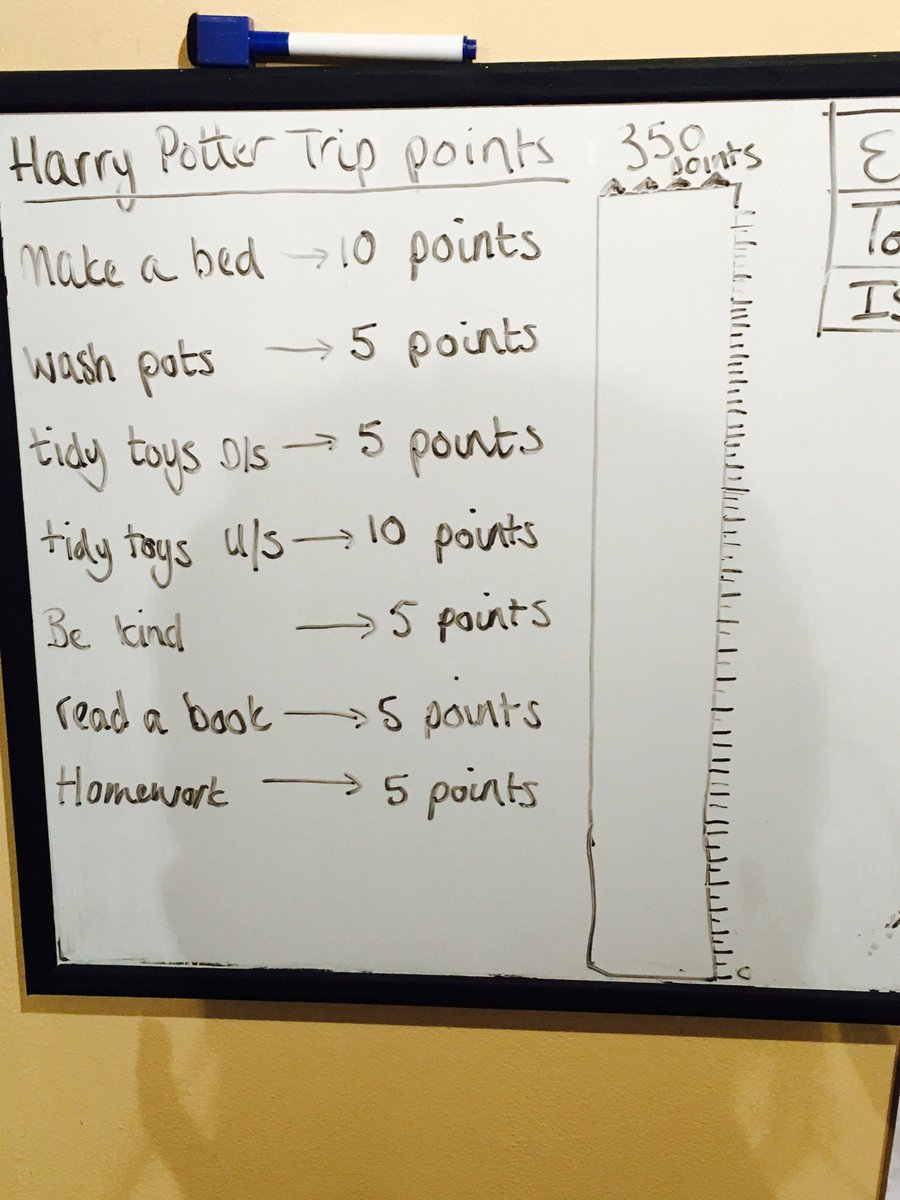 Harry Potter Trip points
350
points
Make a bed → 10 points
wash pots → 5 points
tidy toys D/s → 5 points
tidy toys U/s → 10 points
Be kind → 5 points
read a book → 5 points
Homework → 5 points
0
E
To
Is